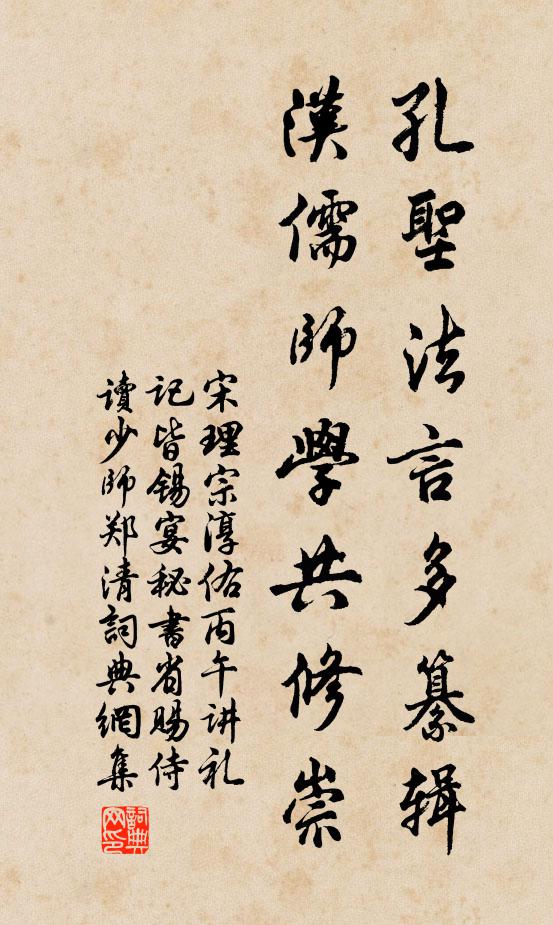 孔聖法言多纂辑
漢儒師學共修崇
宋理宗淳佑丙午讲礼
记皆锡宴秘書省賜侍
讀少师郑清詞典網集
詞典网印